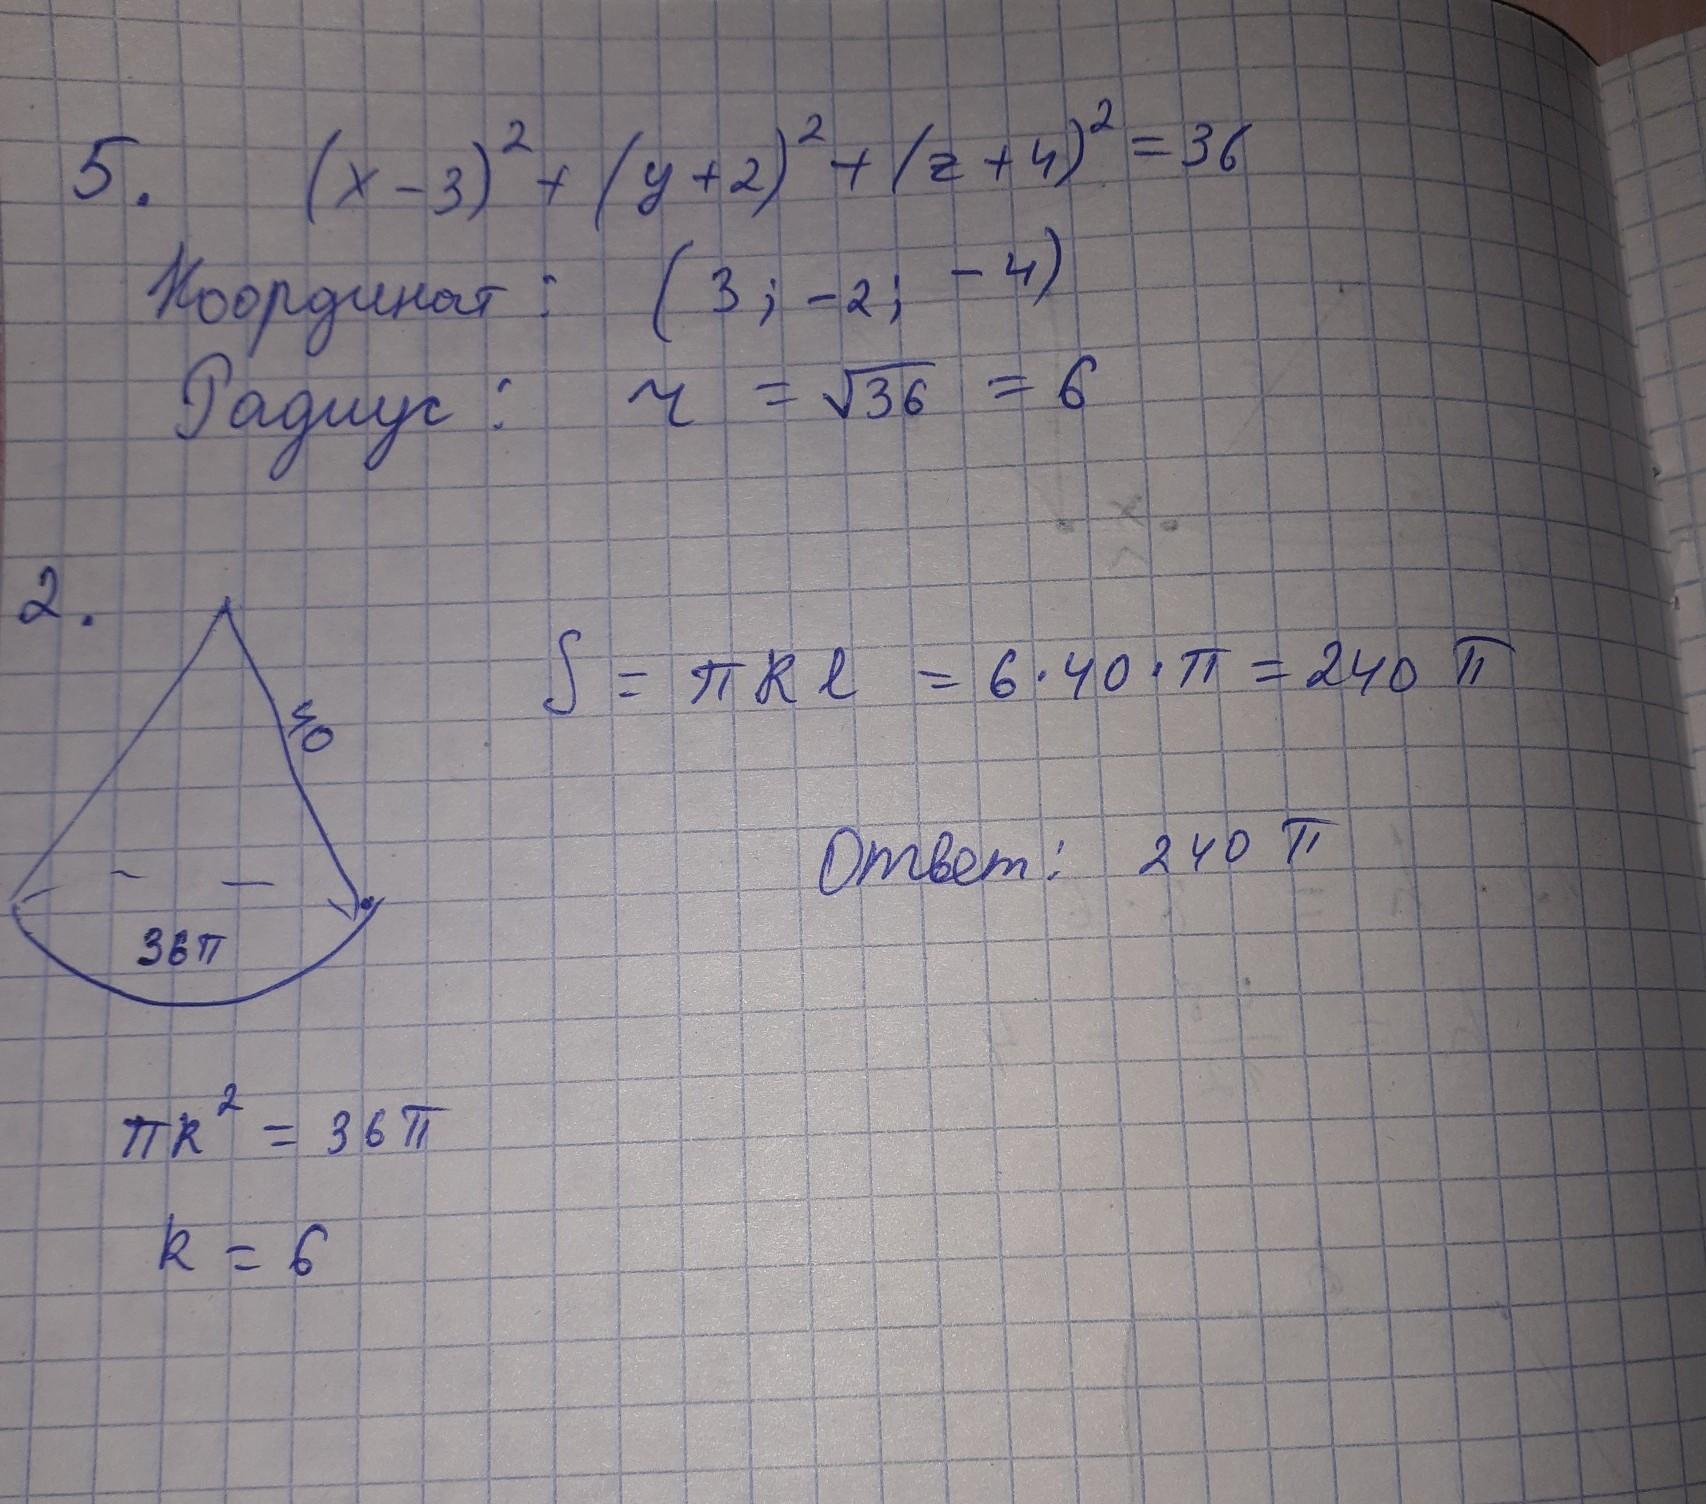 5. (x-3)² + (y+2)² + (z+4)² = 36
Координат: (3; -2; -4)
Радиус: r = √36 = 6
2.
40
S = πRl = 6·40·π = 240π
Ответ: 240π
36π
πR² = 36π
R = 6